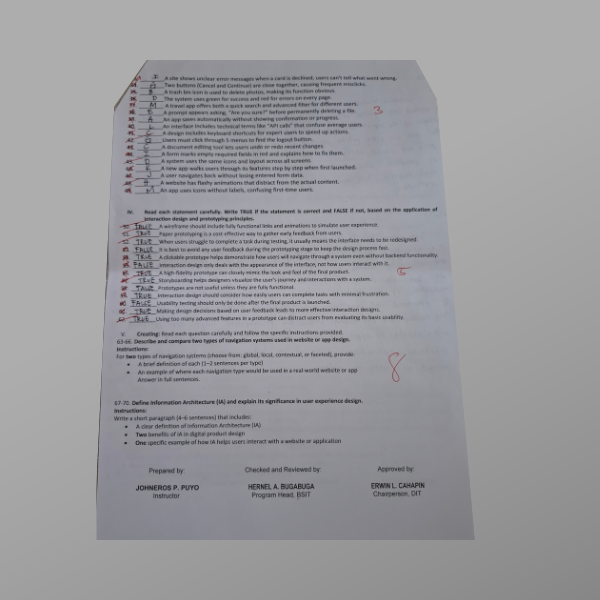 A site shows unclear error messages when a card is declined; users can't tell what went wrong.
Two buttons (Cancel and Continue) are close together, causing frequent misclicks.
A trash bin icon is used to delete photos, making its function obvious.
The system uses green for success and red for errors on every page.
A travel app offers both a quick search and advanced filter for different users.
A prompt appears asking, "Are you sure?" before permanently deleting a file.
3
An app saves automatically without showing confirmation or progress.
An interface includes technical terms like "API calls" that confuse average users.
A design includes keyboard shortcuts for expert users to speed up actions.
Users must click through 5 menus to find the logout button.
A document editing tool lets users undo or redo recent changes.
A form marks empty required fields in red and explains how to fix them.
A system uses the same icons and layout across all screens.
A new app walks users through its features step by step when first launched.
A user navigates back without losing entered form data.
A website has flashy animations that distract from the actual content.
An app uses icons without labels, confusing first-time users.
Read each statement carefully. Write TRUE if the statement is correct and FALSE if not, based on the application of
interaction design and prototyping principles.
FALSE A wireframe should include fully functional links and animations to simulate user experience.
TRUE Paper prototyping is a cost-effective way to gather early feedback from users.
TRUE When users struggle to complete a task during testing, it usually means the interface needs to be redesigned.
FALSE It is best to avoid any user feedback during the prototyping stage to keep the design process fast.
TRUE A clickable prototype helps demonstrate how users will navigate through a system even without backend functionality.
FALSE Interaction design only deals with the appearance of the interface, not how users interact with it.
TRUE A high-fidelity prototype can closely mimic the look and feel of the final product.
TRUE Storyboarding helps designers visualize the user's journey and interactions with a system.
FALSE Prototypes are not useful unless they are fully functional
TRUE Interaction design should consider how easily users can complete tasks with minimal frustration.
FALSE Usability testing should only be done after the final product is launched.
TRUE Making design decisions based on user feedback leads to more effective interaction designs.
TRUE Using too many advanced features in a prototype can distract users from evaluating its basic usability.
V. Creating: Read each question carefully and follow the specific instructions provided.
63-66. Describe and compare two types of navigation systems used in website or app design.
Instructions:
For two types of navigation systems (choose from: global, local, contextual, or faceted), provide:
• A brief definition of each (1–2 sentences per type)
• An example of where each navigation type would be used in a real-world website or app
Answer in full sentences.
8
67-70. Define Information Architecture (IA) and explain its significance in user experience design.
Instructions:
Write a short paragraph (4–6 sentences) that includes:
• A clear definition of Information Architecture (IA)
• Two benefits of IA in digital product design
• One specific example of how IA helps users interact with a website or application
Prepared by: Checked and Reviewed by: Approved by:
JOHNEROS P. PUYO HERNEL A. BUGABUGA ERWIN L. CAHAPIN
Instructor Program Head, BSIT Chairperson, DIT